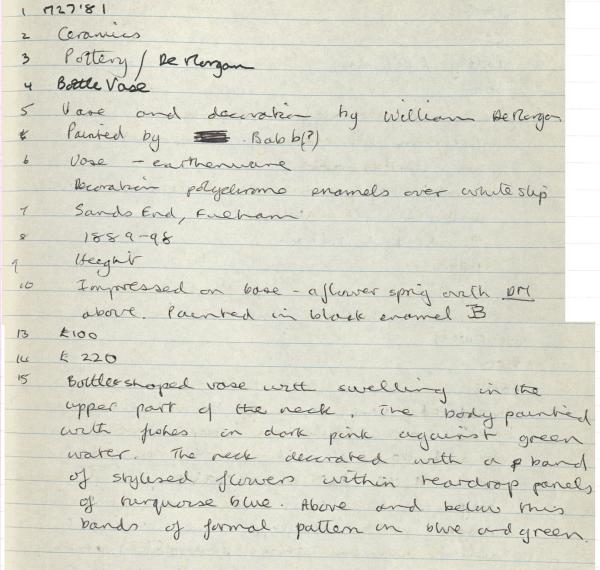 1 M27'81
2 Ceramics
3 Pottery / De Morgan
4 Bottle Vase
5 Vase and decoration by William De Morgan
Painted by Babb(?)
6 Vase - earthenware
Decoration polychrome enamels over white slip
7 Sands End, Fulham
8 1889-98
9 Height
10 Impressed on base - a flower sprig with DM
above. Painted in black enamel B
13 £100
14 £ 220
15 Bottle shaped vase with swelling in the
upper part of the neck. The body painted
with fishes in dark pink against green
water. The neck decorated with a band
of stylised flowers within teardrop panels
of turquoise blue. Above and below this
bands of formal pattern in blue and green.